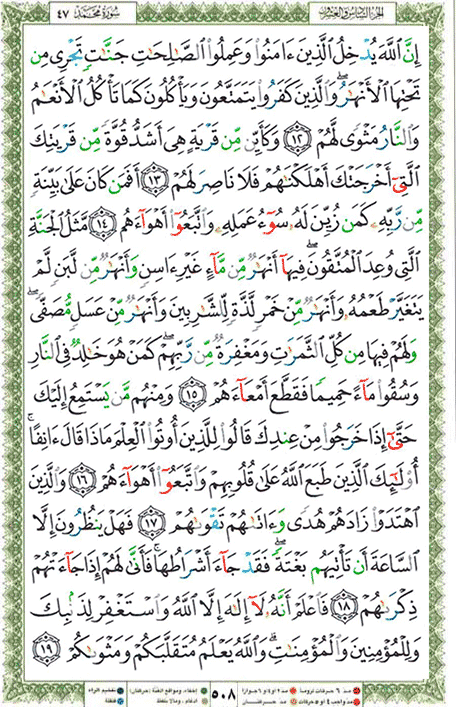 سُورَةُ مُحَمَّد ٤٧
الجزء السادس والعشرون
إِنَّ ٱللَّهَ يُدْخِلُ ٱلَّذِينَ ءَامَنُوا۟ وَعَمِلُوا۟ ٱلصَّٰلِحَٰتِ جَنَّٰتٍ تَجْرِى مِن
تَحْتِهَا ٱلْأَنْهَٰرُ ۖ وَٱلَّذِينَ كَفَرُوا۟ يَتَمَتَّعُونَ وَيَأْكُلُونَ كَمَا تَأْكُلُ ٱلْأَنْعَٰمُ
وَٱلنَّارُ مَثْوًى لَّهُمْ ١٢ وَكَأَيِّن مِّن قَرْيَةٍ هِىَ أَشَدُّ قُوَّةً مِّن قَرْيَتِكَ
ٱلَّتِىٓ أَخْرَجَتْكَ أَهْلَكْنَٰهُمْ فَلَا نَاصِرَ لَهُمْ ١٣ أَفَمَن كَانَ عَلَىٰ بَيِّنَةٍ
مِّن رَّبِّهِۦ كَمَن زُيِّنَ لَهُۥ سُوٓءُ عَمَلِهِۦ وَٱتَّبَعُوٓا۟ أَهْوَآءَهُم ١٤ مَّثَلُ ٱلْجَنَّةِ
ٱلَّتِى وُعِدَ ٱلْمُتَّقُونَ ۖ فِيهَآ أَنْهَٰرٌ مِّن مَّآءٍ غَيْرِ ءَاسِنٍ وَأَنْهَٰرٌ مِّن لَّبَنٍ لَّمْ
يَتَغَيَّرْ طَعْمُهُۥ وَأَنْهَٰرٌ مِّنْ خَمْرٍ لَّذَّةٍ لِّلشَّٰرِبِينَ وَأَنْهَٰرٌ مِّنْ عَسَلٍ مُّصَفًّى ۖ
وَلَهُمْ فِيهَا مِن كُلِّ ٱلثَّمَرَٰتِ وَمَغْفِرَةٌ مِّن رَّبِّهِمْ ۖ كَمَنْ هُوَ خَٰلِدٌ فِى ٱلنَّارِ
وَسُقُوا۟ مَآءً حَمِيمًا فَقَطَّعَ أَمْعَآءَهُمْ ١٥ وَمِنْهُم مَّن يَسْتَمِعُ إِلَيْكَ
حَتَّىٰٓ إِذَا خَرَجُوا۟ مِنْ عِندِكَ قَالُوا۟ لِلَّذِينَ أُوتُوا۟ ٱلْعِلْمَ مَاذَا قَالَ ءَانِفًا ۚ
أُو۟لَٰٓئِكَ ٱلَّذِينَ طَبَعَ ٱللَّهُ عَلَىٰ قُلُوبِهِمْ وَٱتَّبَعُوٓا۟ أَهْوَآءَهُمْ ١٦ وَٱلَّذِينَ
ٱهْتَدَوْا۟ زَادَهُمْ هُدًى وَءَاتَىٰهُمْ تَقْوَىٰهُمْ ١٧ فَهَلْ يَنظُرُونَ إِلَّا
ٱلسَّاعَةَ أَن تَأْتِيَهُم بَغْتَةً ۖ فَقَدْ جَآءَ أَشْرَاطُهَا ۚ فَأَنَّىٰ لَهُمْ إِذَا جَآءَتْهُمْ
ذِكْرَىٰهُمْ ١٨ فَٱعْلَمْ أَنَّهُۥ لَآ إِلَٰهَ إِلَّا ٱللَّهُ وَٱسْتَغْفِرْ لِذَنۢبِكَ
وَلِلْمُؤْمِنِينَ وَٱلْمُؤْمِنَٰتِ ۗ وَٱللَّهُ يَعْلَمُ مُتَقَلَّبَكُمْ وَمَثْوَىٰكُمْ ١٩
مدّ ٦ حركات لزوماً مدّ ٢ أو ٤ أو ٦ جوازاً
إخفاء، ومواقع الغنّة (حركتان) تفخيم الراء
٥٠٨
مدّ واجب ٤ أو ٥ حركات مدّ حركتان
إدغام، وما لا يُلفظ قلقلة